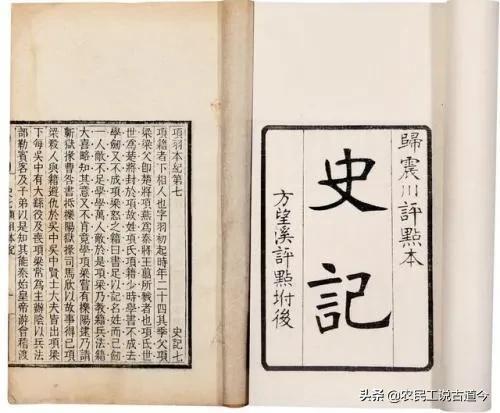 歸震川評點本
史記
方望溪評點坿後
項羽本紀第七 史記七
項籍者下相人也字羽初起時年二十四其季父項
梁梁父即楚將項燕爲秦將王翦所戮者也項氏世
世爲楚將封於項故姓項氏項籍少時學書不成去
學劍又不成項梁怒之籍曰書足以記名姓而已劍
一人敵不足學學萬人敵於是項梁乃教籍兵法籍
大喜略知其意又不肯竟學項梁嘗有櫟陽逮乃請
蘄獄掾曹咎書抵櫟陽獄掾司馬欣以故事得已項
梁殺人與籍避仇於吳中吳中賢士大夫皆出項梁
下每吳中有大繇役及喪項梁常爲主辦陰以兵法
部勒賓客及子弟以是知其能秦始皇帝游會稽渡
头条 @农民工说古道今